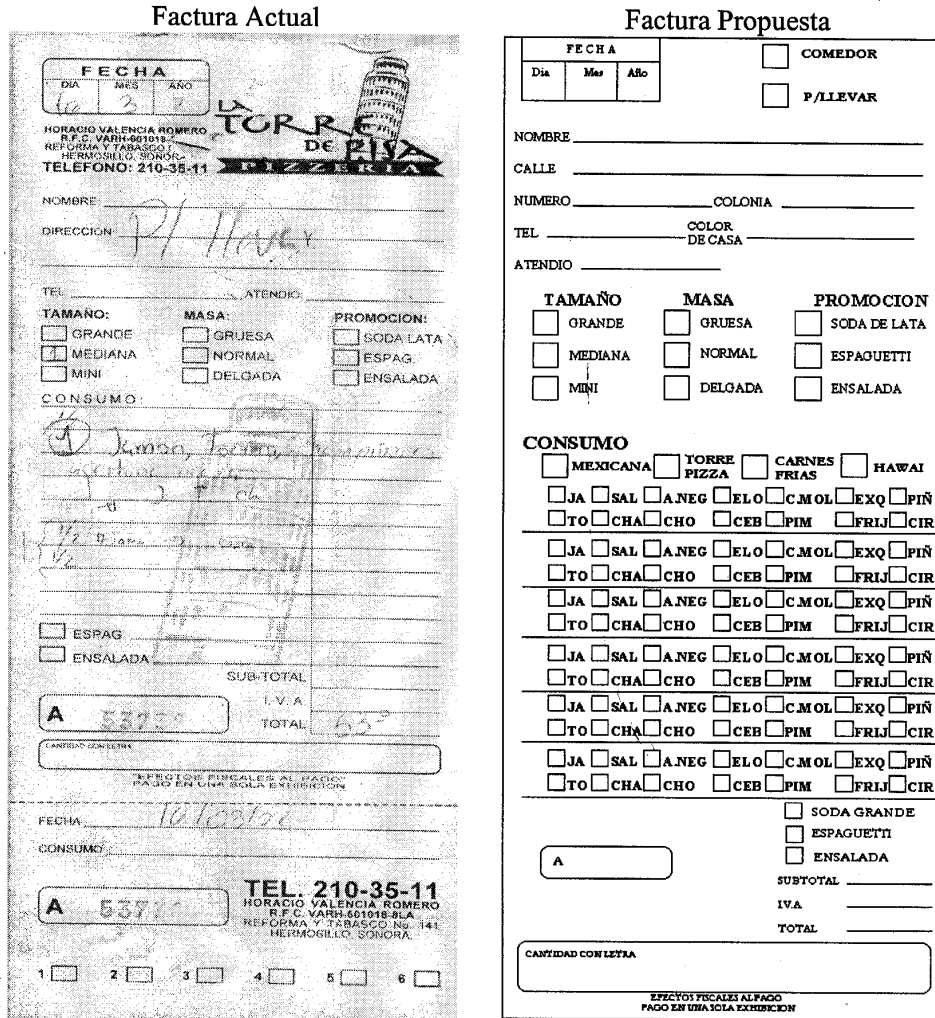 Factura Actual
FECHA
DIA MES AÑO
3
LA
TORRE
DE PISA
PIZZERIA
HORACIO VALENCIA ROMERO
R.F.C. VARH-601018-
REFORMA Y TABASCO
HERMOSILLO, SONORA
TELEFONO: 210-35-11
NOMBRE
DIRECCION P/ llevar
TEL. ATENDIO:
TAMAÑO: MASA: PROMOCION:
GRANDE GRUESA SODA LATA
MEDIANA NORMAL ESPAG.
MINI DELGADA ENSALADA
CONSUMO:
1 Jamon,
1/2
1/2
ESPAG
ENSALADA
SUB-TOTAL
I.V.A
TOTAL
A
CANTIDAD CON LETRA
"EFECTOS FISCALES AL PAGO"
PAGO EN UNA SOLA EXHIBICION
FECHA
CONSUMO
A
TEL. 210-35-11
HORACIO VALENCIA ROMERO
R.F.C. VARH-601018-8LA
REFORMA Y TABASCO No. 141
HERMOSILLO, SONORA.
1 2 3 4 5 6
Factura Propuesta
FECHA
Dia Mes Año
COMEDOR
P/LLEVAR
NOMBRE
CALLE
NUMERO COLONIA
TEL COLOR DE CASA
ATENDIO
TAMAÑO MASA PROMOCION
GRANDE GRUESA SODA DE LATA
MEDIANA NORMAL ESPAGUETTI
MINI DELGADA ENSALADA
CONSUMO
MEXICANA TORRE PIZZA CARNES FRIAS HAWAI
JA SAL A.NEG ELO C.MOL EXQ PIÑ
TO CHA CHO CEB PIM FRIJ CIR
JA SAL A.NEG ELO C.MOL EXQ PIÑ
TO CHA CHO CEB PIM FRIJ CIR
JA SAL A.NEG ELO C.MOL EXQ PIÑ
TO CHA CHO CEB PIM FRIJ CIR
JA SAL A.NEG ELO C.MOL EXQ PIÑ
TO CHA CHO CEB PIM FRIJ CIR
JA SAL A.NEG ELO C.MOL EXQ PIÑ
TO CHA CHO CEB PIM FRIJ CIR
JA SAL A.NEG ELO C.MOL EXQ PIÑ
TO CHA CHO CEB PIM FRIJ CIR
SODA GRANDE
ESPAGUETTI
ENSALADA
A
SUBTOTAL
I.V.A
TOTAL
CANTIDAD CON LETRA
EFECTOS FISCALES AL PAGO
PAGO EN UNA SOLA EXHIBICION